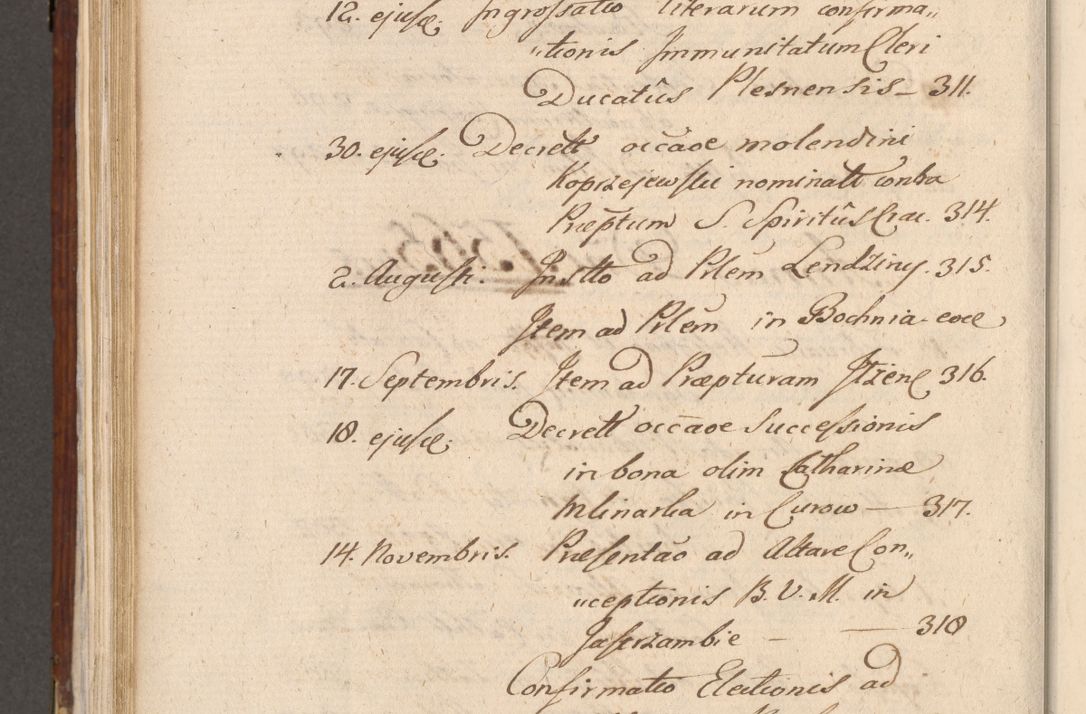 12. ejusd. Ingrossatio literarum confirma„
„tionis Immunitatum Cleri
Ducatûs Plesnensis — 311.
30. ejusd. Decrett occãoe molendini
Koprzejewskii nominatt contra
Præptum S. Spiritûs Crac. 314.
2. Augusti. Instto ad Plem Lendziny. 315.
Item ad Plem in Bochnia eod
17. Septembris. Item ad Præpturam Itzen 316.
18. ejusd. Decrett occãoe Successionis
in bona olim Catharinæ
Mlinarka in Curow — 317.
14. Novembris. Præsentão ad Altare Con„
„ceptionis B. V. M. in
Jastrzambie — — 318
Confirmatio Electionis ad